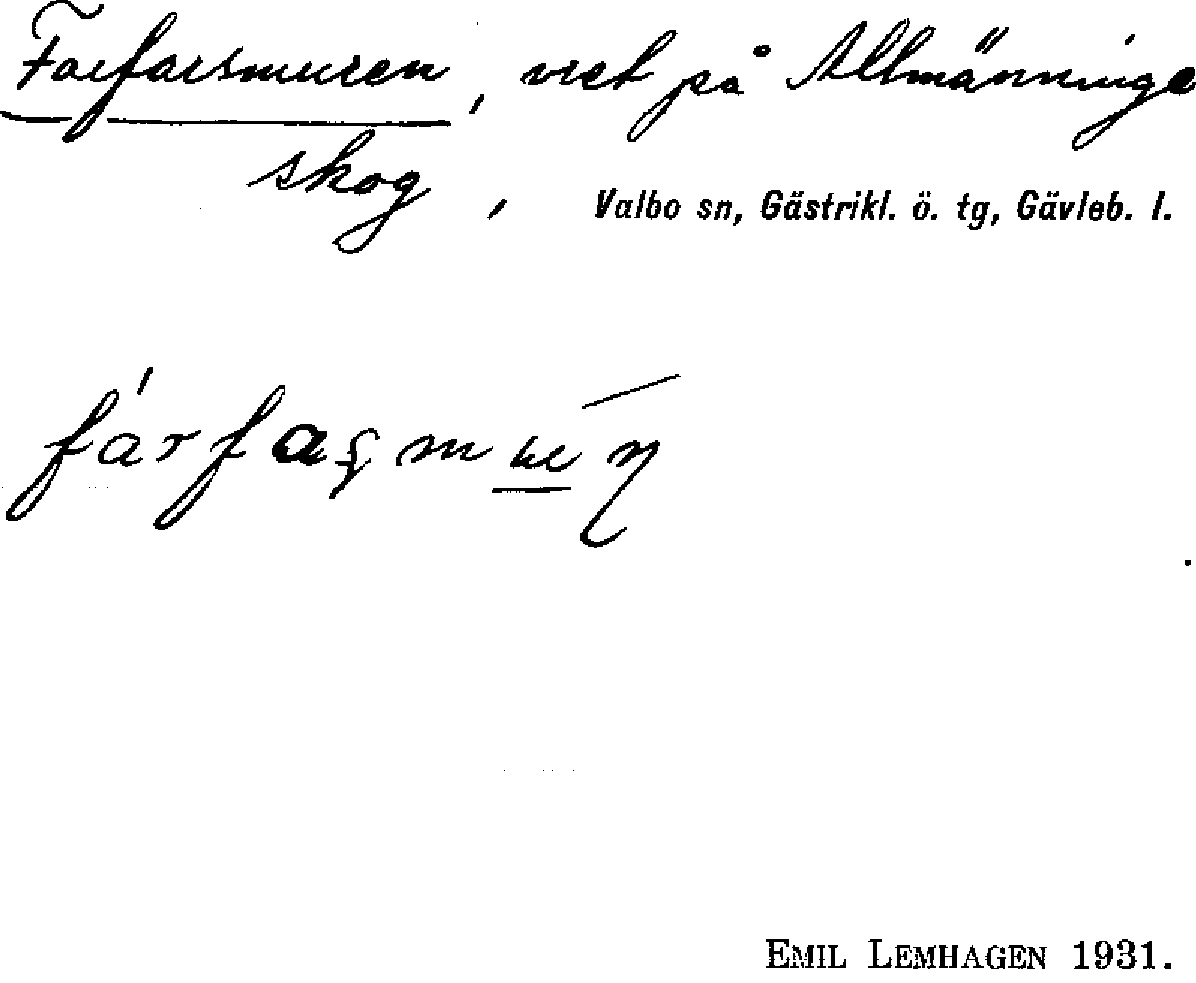 Farfarsmuren, vret på Allmänninge
skog, Valbo sn, Gästrikl. ö. tg, Gävleb. l.
EMIL LEMHAGEN 1931.